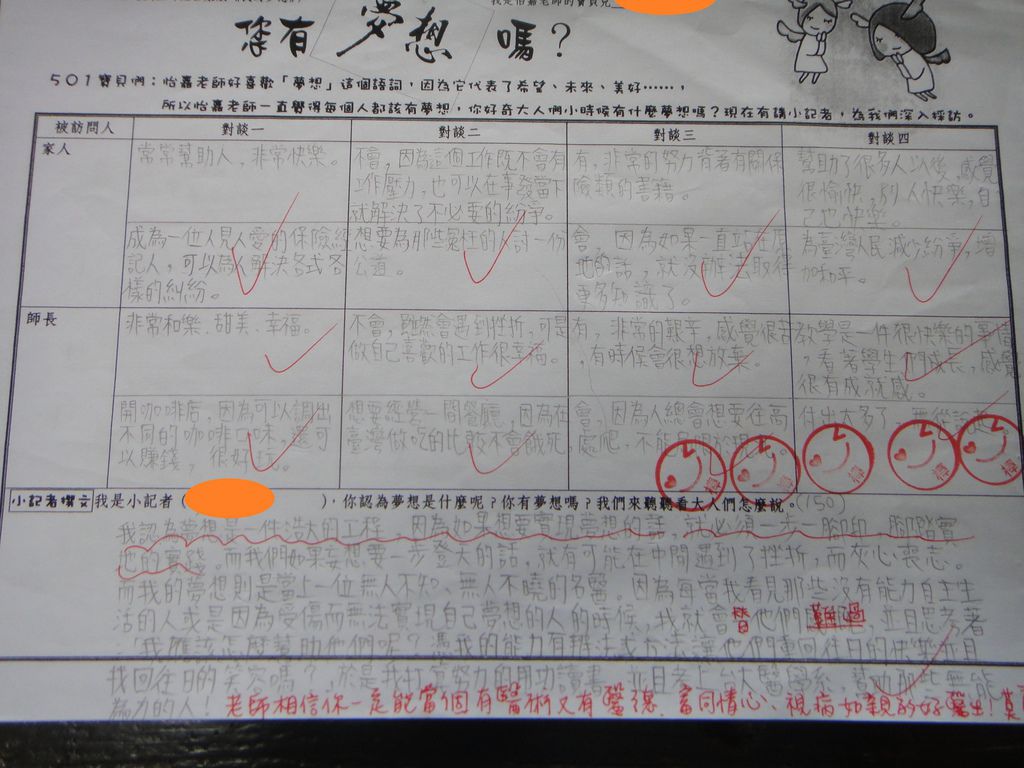 我是怡嘉老師的寶貝兒
您有夢想嗎？
501寶貝們：怡嘉老師好喜歡「夢想」這個語詞，因為它代表了希望、未來、美好……，
所以怡嘉老師一直覺得每個人都該有夢想，你好奇大人們小時候有什麼夢想嗎？現在有請小記者，為我們深入採訪。
被訪問人 對談一 對談二 對談三 對談四
家人
常常幫助人，非常快樂。
不會，因為這個工作既不會有
工作壓力，也可以在事發當下
就解決了不必要的紛爭。
有，非常的努力背著有關保
險類的書籍。
幫助了很多人以後，感覺
很愉快，別人快樂，自
己也快樂。
成為一位人見人愛的保險經
記人，可以為人解決各式各
樣的糾紛。
想要為那些冤枉的人討一份
公道。
會，因為如果一直站在原
地的話，就沒辦法取得
更多知識了。
為臺灣人民減少紛爭，增
加和平。
師長
非常和樂、甜美、幸福。
不會，雖然會遇到挫折，可是
做自己喜歡的工作很幸福。
有，非常的艱辛，感覺很苦
，有時候會很想放棄。
教學是一件很快樂的事情
，看著學生們成長，感覺
很有成就感。
開咖啡店，因為可以調出
不同的咖啡口味，還可
以賺錢，很好玩。
想要經營一間餐廳，因為在
臺灣做吃的比較不會餓死。
會，因為人總會想要往高
處爬，不能
付出太多了，無從說起
小記者撰文 我是小記者（ ），你認為夢想是什麼呢？你有夢想嗎？我們來聽聽看大人們怎麼說。(150)
我認為夢想是一件浩大的工程，因為如果想要實現夢想的話，就必須一步一腳印，腳踏實
地的實踐。而我們如果妄想要一步登天的話，就有可能在中間遇到了挫折，而灰心喪志。
而我的夢想則是當上一位無人不知、無人不曉的名醫。因為每當我看見那些沒有能力自主生
活的人或是因為受傷而無法實現自己夢想的人的時候，我就會替他們難過，並且思考著
：「我應該怎麼幫助他們呢？憑我的能力有辦法或方法讓他們重回往日的快樂並且
找回往日的笑容嗎？」於是我打算努力的用功讀書，並且考上台大醫學系，幫助那些無能
為力的人！
老師相信你一定能當個有醫術又有醫德、富同情心、視病如親的好醫生！